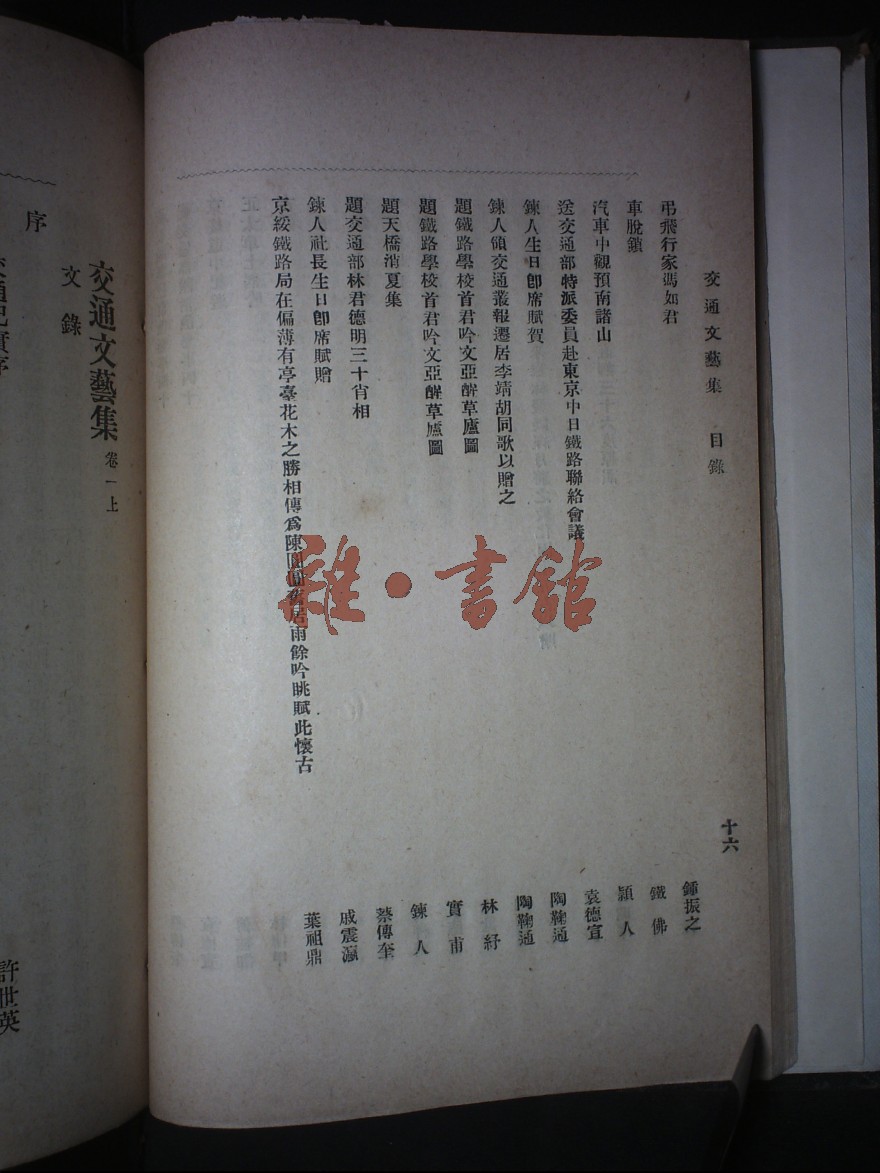 交通文藝集　目錄
十六
弔飛行家馮如君　鍾振之
車脫鎖　鐵佛
汽車中觀預南諸山　穎人
送交通部特派委員赴東京中日鐵路聯絡會議　袁德宣
鍊人生日卽席賦賀　陶鞠通
鍊人領交通叢報遷居李靖胡同歌以贈之　陶鞠通
題鐵路學校首君吟文亞醉草廬圖　林紓
題鐵路學校首君吟文亞醉草廬圖　實甫
題天橋消夏集　鍊人
題交通部林君德明三十肖相　蔡傳奎
鍊人社長生日卽席賦贈　戚震瀛
京綏鐵路局在偏薄有亭臺花木之勝相傳爲陳圓圓舊居雨餘吟眺賦此懷古　葉祖鼎
交通文藝集　卷一上
文錄
序
許世英
雜·書館